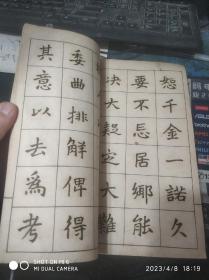 恕千金一諾久
要不忘居鄉能
決大疑定大難
委曲排解俾得
其意以去爲考
DUAL CAMERA
2023/4/8 18:19